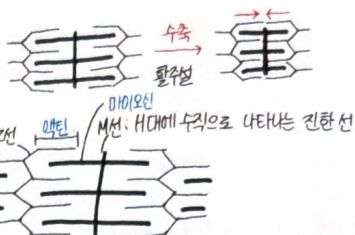 수축
활주설
마이오신
액틴
M선: H대에 수직으로 나타나는 진한 선